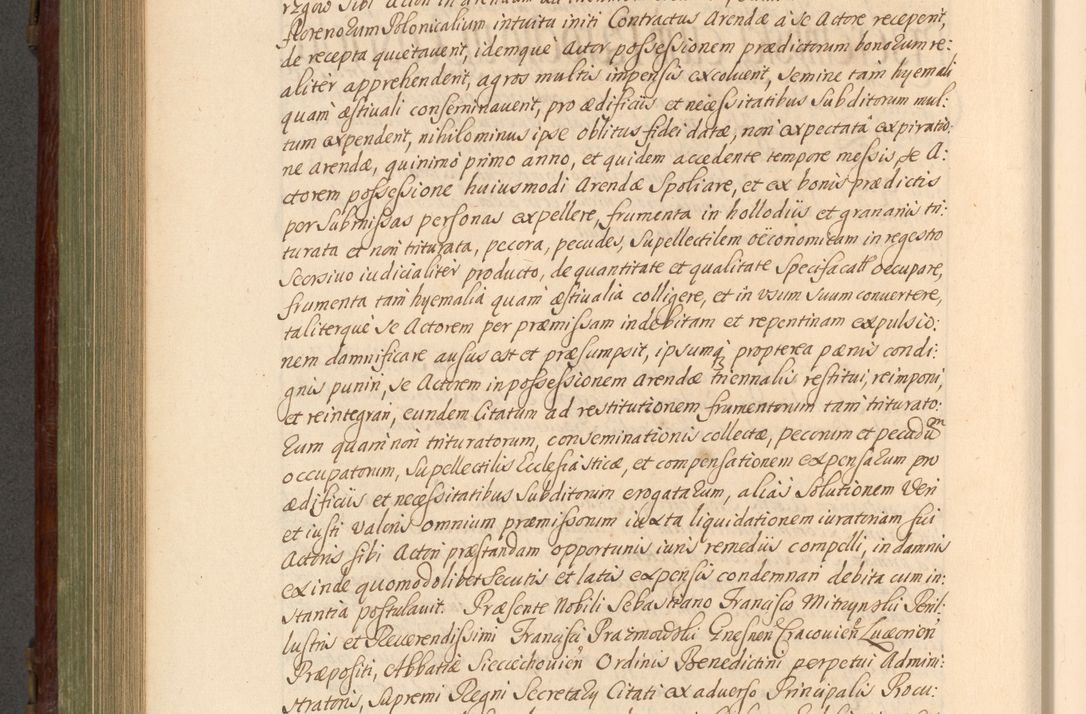 Florenorum Polonicalium intuitu initi Contractus Arendæ à se Actore recepent,
de recepta quietavent, idemque Actor possessionem prædictorum bonorum re:
aliter apprehendent, agros multis impensis excoluent, semine tam hyemali
quam æstivali conseminauent, pro ædificiis et necessitatibus Subditorum mul:
tum expendent, nihilominus ipse oblitus fidei datæ, non expectata expiratio:
ne arendæ, quinimo primo anno, et quidem accedente tempore messis, se A:
ctorem possessione huiusmodi Arendæ Spoliare, et ex bonis prædictis
per submissas personas expellere, frumenta in hollodiis et granariis tri:
turata et non triturata, pecora, pecudes, Supellectilem oëconomicam in regestro
Seorsivo iudicialiter producto, de quantitate et qualitate Specificatt occupare,
frumenta tam hyemalia quam æstivalia colligere, et in vsum suum convertere,
taliterque se Actorem per præmissam indebitam et repentinam expulsio:
nem damnificare ausus est et præsumpsit, ipsumq propterea pænis condi:
gnis puniri, se Actorem in possessionem Arendæ triennalis restitui, reimponi,
et reintegrari, eundem Citatum ad restitutionem frumentorum tam triturato:
rum quam non trituratorum, conseminationis collectæ, pecorum et pecudum
occupatorum, Supellectilis Ecclesiasticæ, et compensationem expensarum pro
ædificiis et necessitatibus Subditorum erogatarum, alias Solutionem Veri
et iusti valoris omnium præmissorum iuxta liquidationem iuratoriam sui
Actoris sibi Actori præstandam opportunis iuris remediis compelli, in damnis
exinde quomodolibet secutis et latis expensis condemnari debita cum in:
stantia postulauit. Præsente Nobili Sebastiano Francisco Mitrynski Perill:
lustris et Reverendissimi Francisci Prazmowski Gnesnen Cracovien Luceorien
Præpositi, Abbatiæ Sieccechovien Ordinis Benedictini perpetui Admini:
stratoris, Supremi Regni Secretarij Citati ex adverso Principalis Procu: